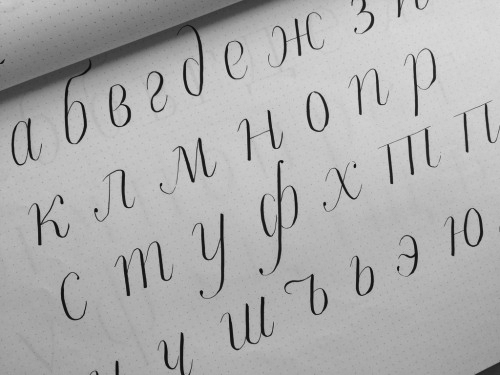 а б в г д е ж з
к л м н о п р
с т у ф х т п
ч ш ъ ь э ю